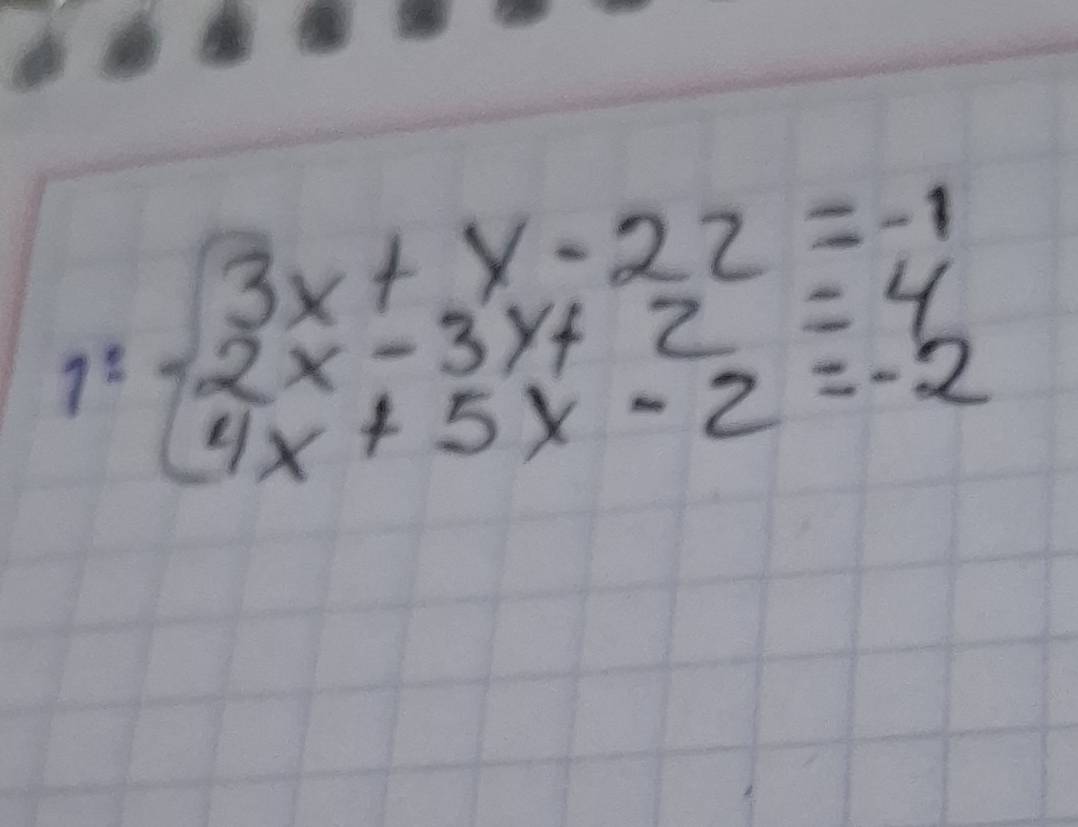 3x + y - 2z = -1
1: 2x - 3y + z = 4
4x + 5y - z = -2